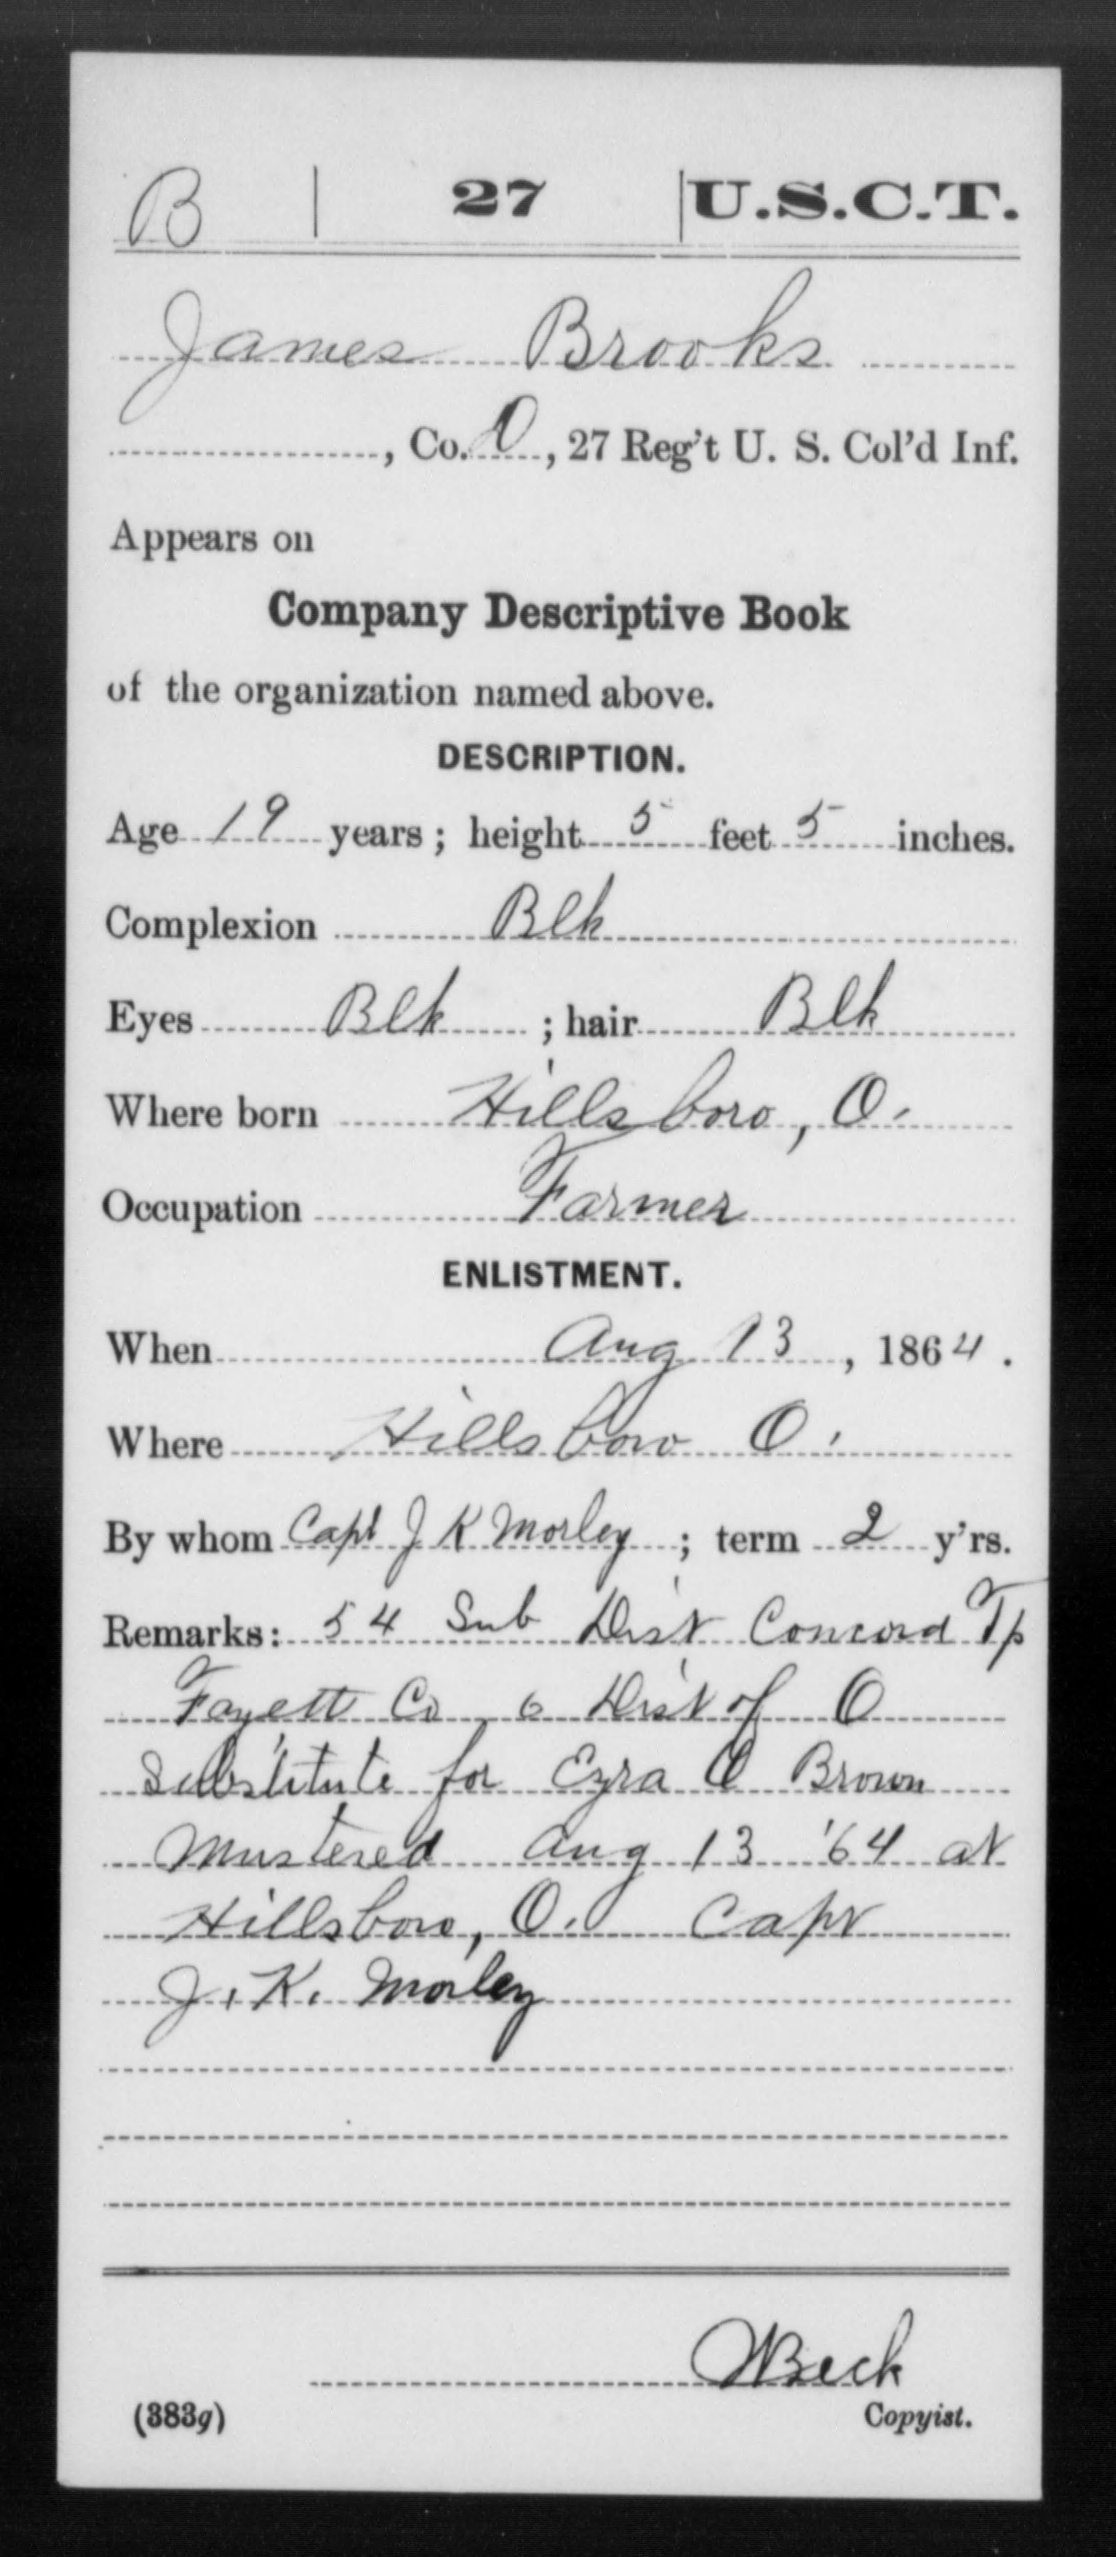 B | 27 | U.S.C.T.
James Brooks
, Co. D, 27 Reg't U. S. Col'd Inf.
Appears on
Company Descriptive Book
of the organization named above.
DESCRIPTION.
Age 19 years; height 5 feet 5 inches.
Complexion Blk
Eyes Blk ; hair Blk
Where born Hillsboro, O.
Occupation Farmer
ENLISTMENT.
When Aug 13, 1864.
Where Hillsboro O.
By whom Capt J K Morley; term 2 y'rs.
Remarks: 54 Sub Dist Concord Tp
Fayett Co 6 Dist of O
Substitute for Ezra Brown
Mustered Aug 13 '64 at
Hillsboro, O. Capt
J. K. Morley
Beck
(383g) Copyist.